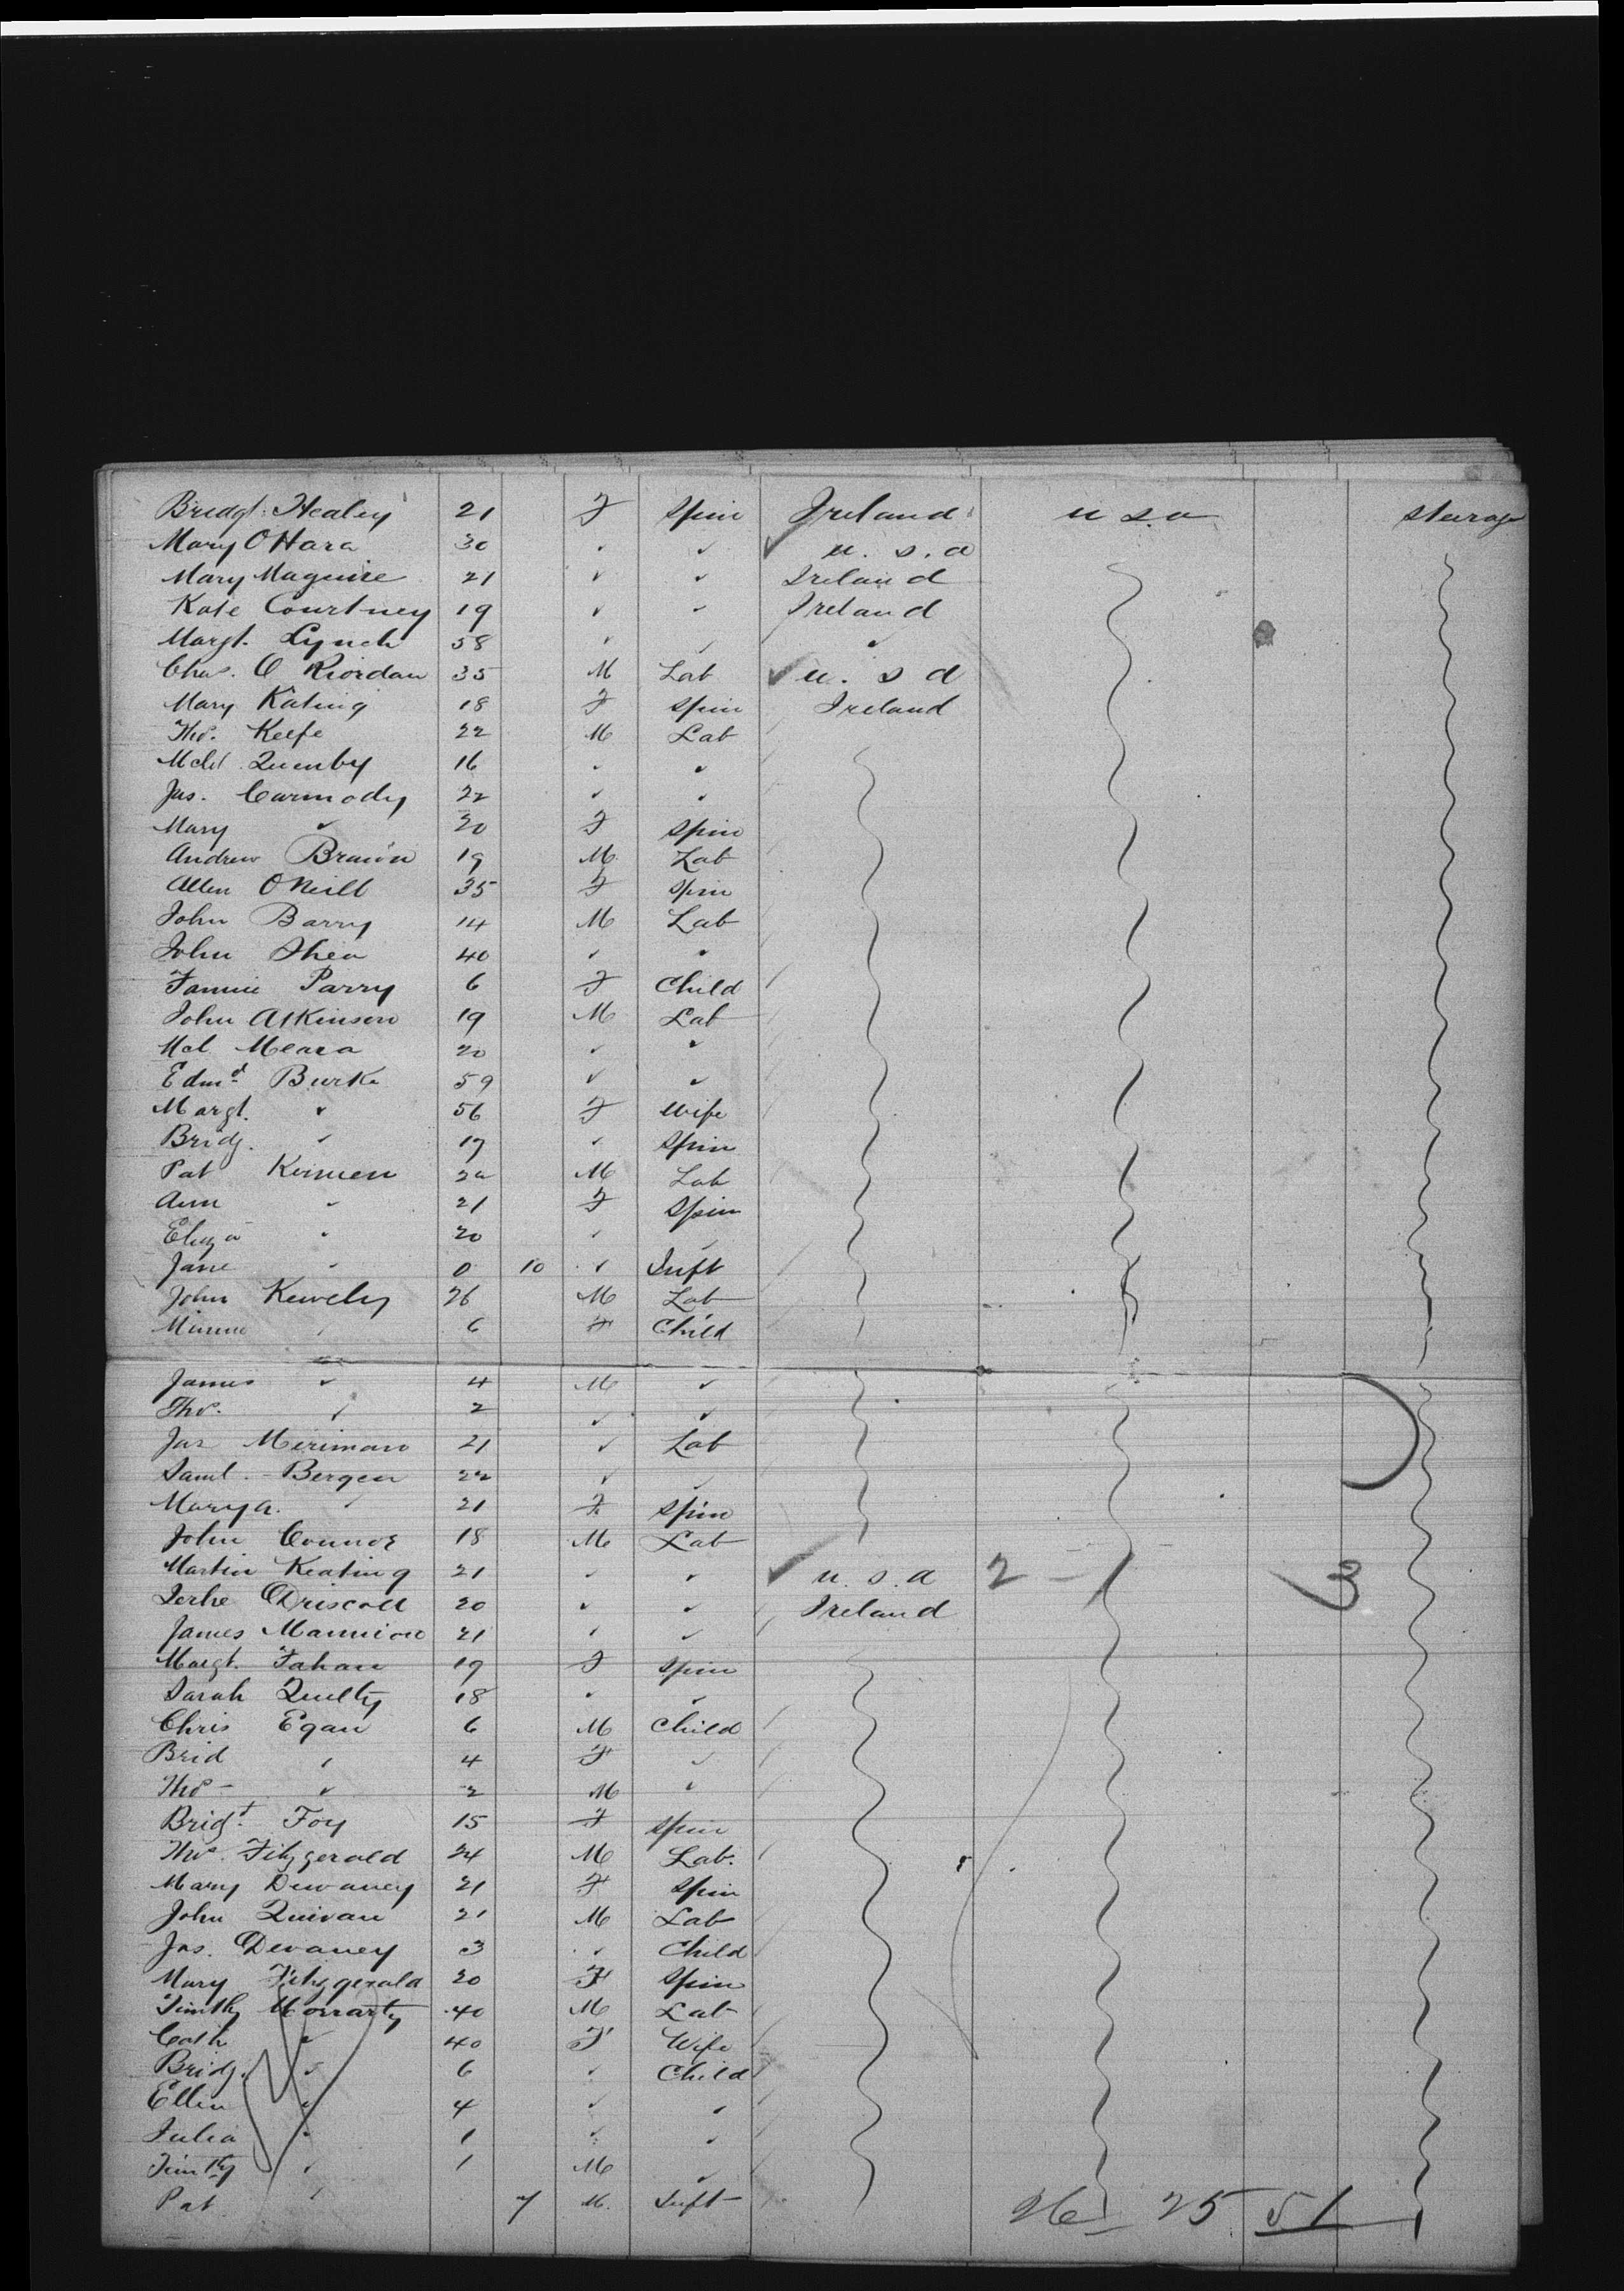 Bridgt. Healey 21 F Spin Ireland u s. a sterage
Mary O Hara 30 " ✓ ✓ u. s. a
Mary Maguire 21 ✓ ✓ Ireland
Kate Courtney 19 ✓ ✓ Ireland
Margt. Lynch 58 ✓ ✓ ✓
Chas. O Riordan 35 M Lab ✓ u. s a
Mary Kating 18 F Spin Ireland
Tho. Keefe 22 M Lab
Mchl Quenby 16 ✓ ✓
Jas. Carmody 22 ✓ ✓
Mary ✓ 20 F Spin
Andrew Brawn 19 M Lab
Allen O Neill 35 F Spin
John Barry 14 M Lab
John Shea 40 ✓ "
Fannie Parry 6 F Child
John Atkinson 19 M Lab
Mcl Meara 20 ✓ ✓
Edmd Burke 59 ✓ ✓
Margt. ✓ 56 F Wife
Bridg. ✓ 17 ✓ Spin
Pat 22 M Lab
Ann ✓ 21 F Spin
Eliza " 20 ✓ ✓
Jane ✓ 0 10 ✓ Inft
John 26 M Lab
Minnie ✓ 6 F Child
James ✓ 4 M ✓
Tho. ✓ 2 ✓ ✓
Jas Meriman 21 ✓ Lab
Saml. Bergen 22 ✓ ✓
Mary a. ✓ 21 F Spin
John Connor 18 M Lab
Martin Keating 21 ✓ ✓ ✓ u. s. a 2 - 3
O Driscoll 20 ✓ ✓ Ireland
James Mannion 21 ✓ ✓
Margt. Fahan 19 F Spin
Sarah Quilty 18 ✓ ✓
Chris Egan 6 M Child
Brid ✓ 4 F ✓
Tho - ✓ 2 M ✓
Bridgt. Foy 15 F Spin
Tho. Fitzgerald 24 M Lab.
Mary Dewaney 21 F Spin
John Quivan 21 M Lab
Jas. Devaney 3 ✓ Child
Mary Fitzgerald 20 F Spin
Timthy Morrarty 40 M Lab
Cath ✓ 40 F Wife
Bridg. ✓ 6 ✓ Child
Ellen ✓ 4 ✓ ✓
Julia ✓ 1 ✓ ✓
Timthy ✓ 1 M ✓
Pat ✓ 7 M. Inft 26 25 51